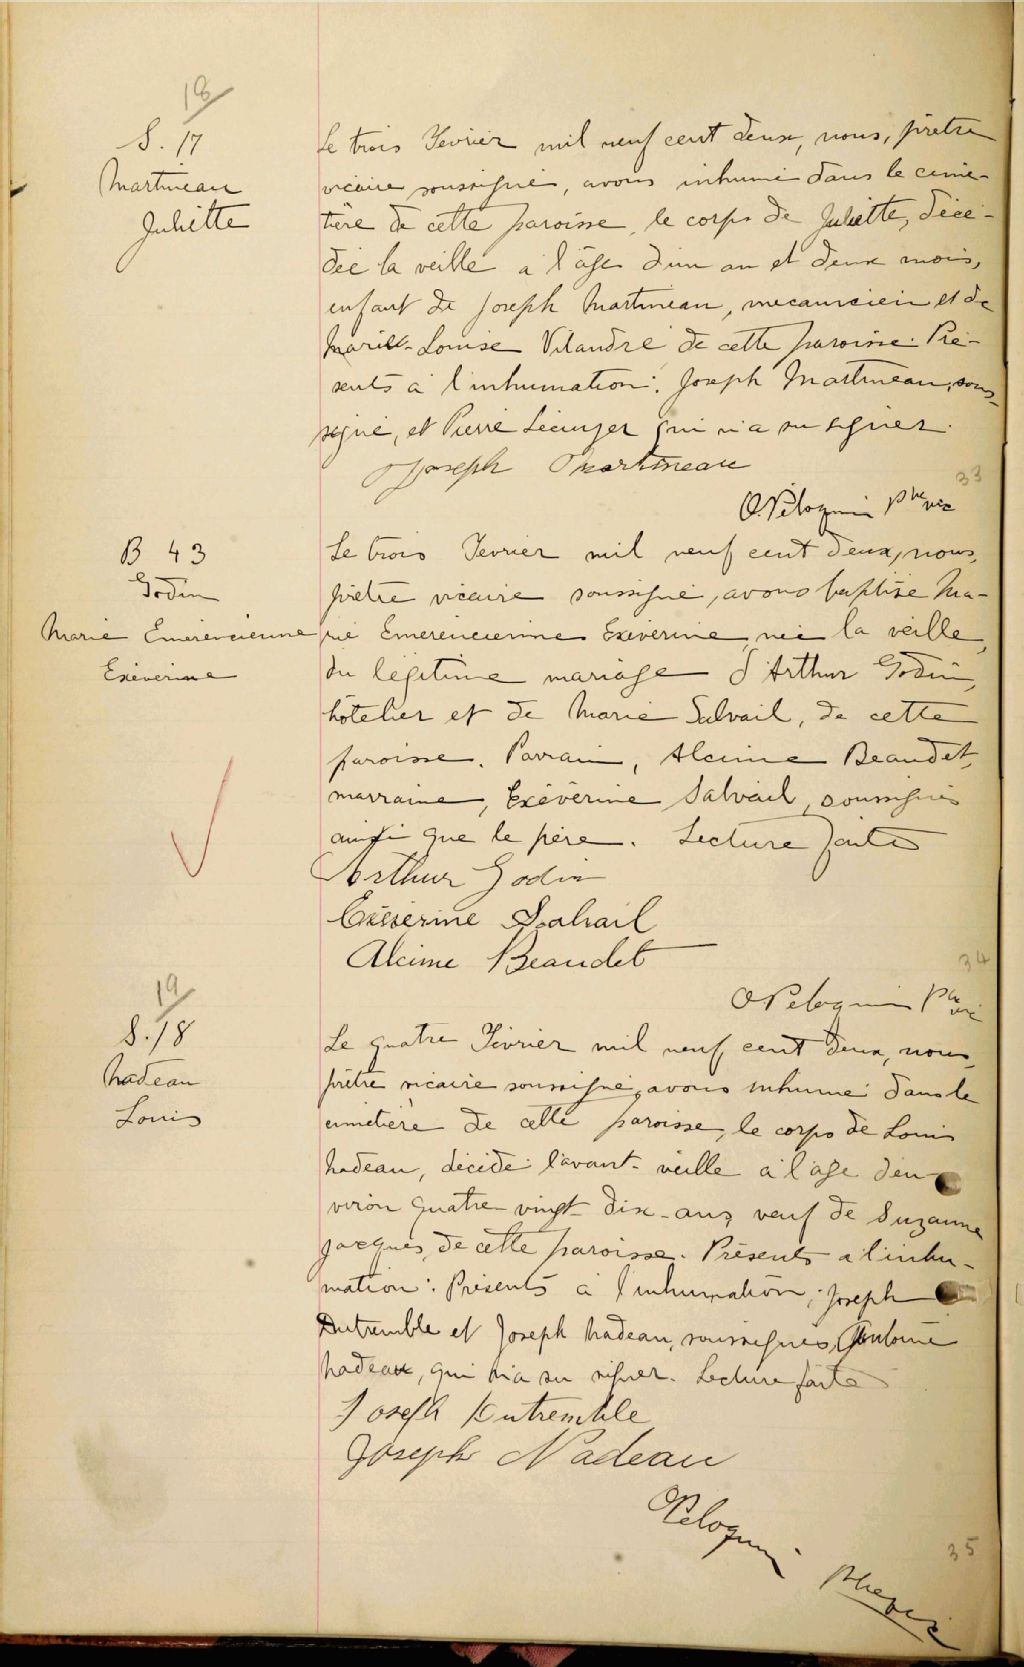 18
S. 17
Martineau
Juliette
Le trois Février mil neuf cent deux, nous, prêtre
vicaire soussigné, avons inhumé dans le cime-
tière de cette paroisse, le corps de Juliette, décé-
dée la veille a l'âge d'un an et deux mois,
enfant de Joseph Martineau, mecanicien et de
Marie-Louise Vilandré de cette paroisse. Pré-
sents à l'inhumation: Joseph Martineau, sous-
signé, et Pierre qui n'a su signer.
Joseph Martineau
33
O. Péloquin Ptre vic
B 43
Godin
Marie Emérencienne
Exévérine
Le trois Fevrier mil neuf cent deux, nous,
prêtre vicaire soussigné, avons baptisé Ma-
rie Emérencienne Exévérine, née la veille,
du légitime mariage d'Arthur Godin,
hôtelier et de Marie Salvail, de cette
paroisse. Parrain, Alcime Beaudet,
marraine, Exévérine Salvail, soussignés
ainsi que le père. Lecture faite
Arthur Godin
Exéverine Salvail
Alcime Beaudet
34
O Peloquin Ptre vic
19
S. 18
Nadeau
Louis
Le quatre Février mil neuf cent deux, nous,
prêtre vicaire soussigné, avons inhumé dans le
cimetière de cette paroisse, le corps de Louis
Nadeau, décédé l'avant-veille a l'âge d'en-
viron quatre-vingt-dix-ans, veuf de Suzanne
Jacques, de cette paroisse. Présents a l'inhu-
mation: Présents à l'inhumation, Joseph
Dutremble et Joseph Nadeau, soussignés, Antoine
Nadeau, qui n'a su signer. Lecture faite
Joseph Dutremble
Joseph Nadeau
O Peloquin
35
Ptre vic